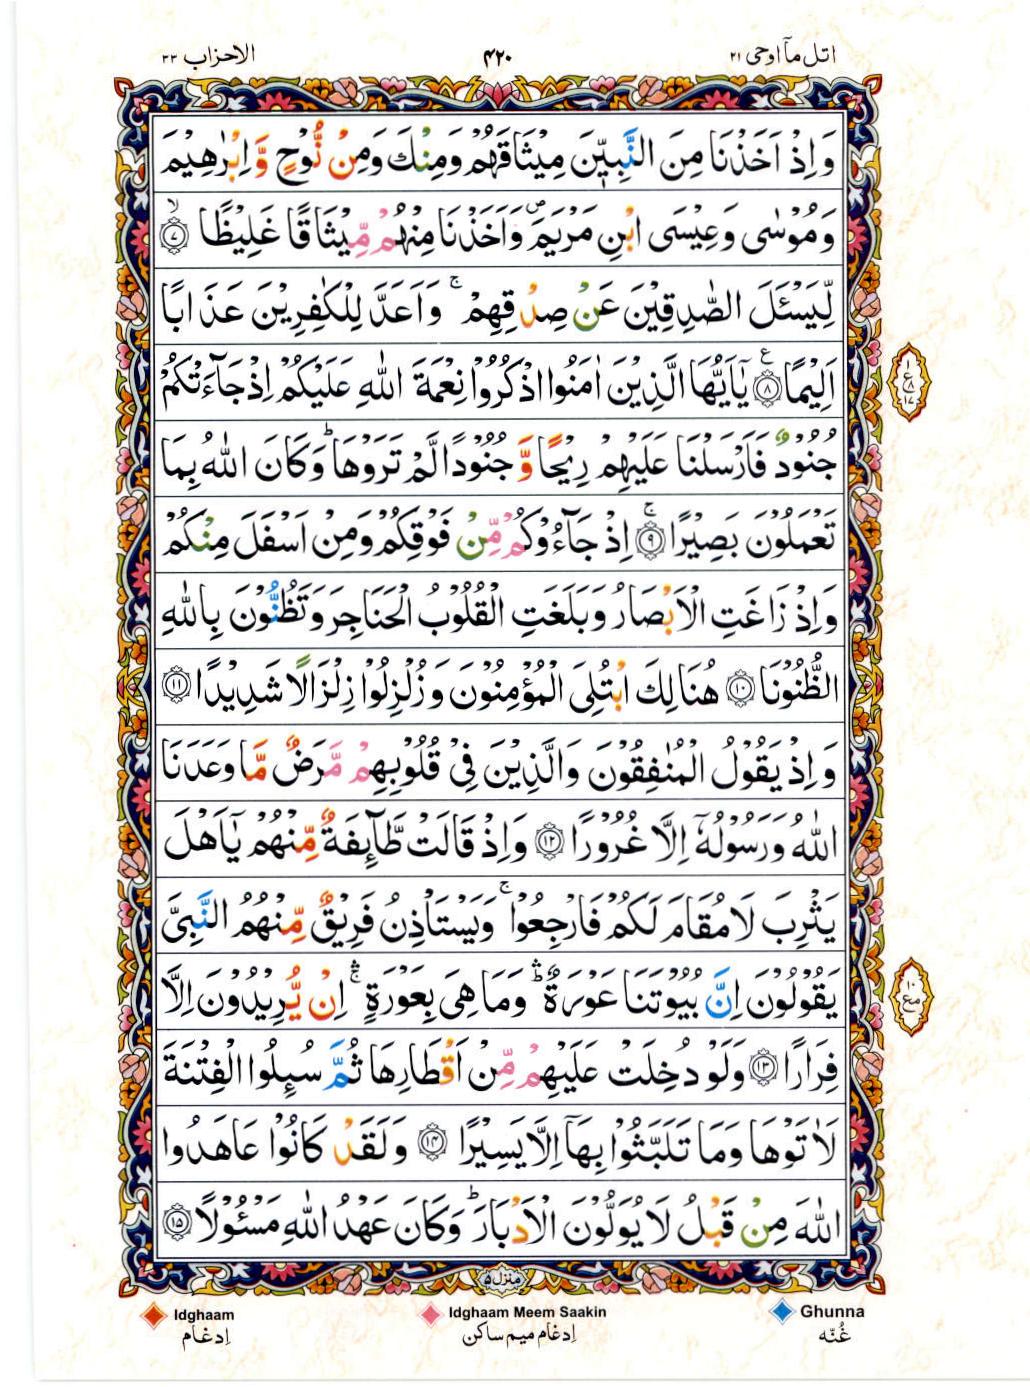 اتل مآ اوحی ۲۱
۴۲۰
الاحزاب ۳۳
وَاِذْ اَخَذْنَا مِنَ النَّبِيّٖنَ مِيْثَاقَهُمْ وَمِنْكَ وَمِنْ نُّوْحٍ وَّاِبْرٰهِيْمَ
وَمُوْسٰى وَعِيْسَى ابْنِ مَرْيَمَ ۪ وَاَخَذْنَا مِنْهُمْ مِّيْثَاقًا غَلِيْظًا ۙ‏﴿۷﴾
لِّيَسْئَلَ الصّٰدِقِيْنَ عَنْ صِدْقِهِمْ ۚ وَاَعَدَّ لِلْكٰفِرِيْنَ عَذَابًا
اَلِيْمًا ﴿۸﴾ ع يٰۤاَيُّهَا الَّذِيْنَ اٰمَنُوا اذْكُرُوْا نِعْمَةَ اللّٰهِ عَلَيْكُمْ اِذْ جَآءَتْكُمْ
جُنُوْدٌ فَاَرْسَلْنَا عَلَيْهِمْ رِيْحًا وَّجُنُوْدًا لَّمْ تَرَوْهَا ؕ وَكَانَ اللّٰهُ بِمَا
تَعْمَلُوْنَ بَصِيْرًا ۚ﴿۹﴾ اِذْ جَآءُوْكُمْ مِّنْ فَوْقِكُمْ وَمِنْ اَسْفَلَ مِنْكُمْ
وَاِذْ زَاغَتِ الْاَبْصَارُ وَبَلَغَتِ الْقُلُوْبُ الْحَنَاجِرَ وَتَظُنُّوْنَ بِاللّٰهِ
الظُّنُوْنَا ﴿۱۰﴾ هُنَالِكَ ابْتُلِىَ الْمُؤْمِنُوْنَ وَزُلْزِلُوْا زِلْزَالًا شَدِيْدًا ﴿۱۱﴾
وَاِذْ يَقُوْلُ الْمُنٰفِقُوْنَ وَالَّذِيْنَ فِىْ قُلُوْبِهِمْ مَّرَضٌ مَّا وَعَدَنَا
اللّٰهُ وَرَسُوْلُهٗۤ اِلَّا غُرُوْرًا ﴿۱۲﴾ وَاِذْ قَالَتْ طَّآئِفَةٌ مِّنْهُمْ يٰۤاَهْلَ
يَثْرِبَ لَا مُقَامَ لَكُمْ فَارْجِعُوْا ۚ وَيَسْتَاْذِنُ فَرِيْقٌ مِّنْهُمُ النَّبِىَّ
يَقُوْلُوْنَ اِنَّ بُيُوْتَنَا عَوْرَةٌ ۛؕ وَمَا هِىَ بِعَوْرَةٍ ۛۚ اِنْ يُّرِيْدُوْنَ اِلَّا
فِرَارًا ﴿۱۳﴾ وَلَوْ دُخِلَتْ عَلَيْهِمْ مِّنْ اَقْطَارِهَا ثُمَّ سُئِلُوا الْفِتْنَةَ
لَاٰتَوْهَا وَمَا تَلَبَّثُوْا بِهَاۤ اِلَّا يَسِيْرًا ﴿۱۴﴾ وَلَقَدْ كَانُوْا عَاهَدُوا
اللّٰهَ مِنْ قَبْلُ لَا يُوَلُّوْنَ الْاَدْبَارَ ؕ وَكَانَ عَهْدُ اللّٰهِ مَسْئُوْلًا ﴿۱۵﴾
۱ ع ۸ ۱۷
۱۰ مع
منزل ۵
Idghaam
اِدغام
Idghaam Meem Saakin
اِدغام میم ساکن
Ghunna
غُنّه